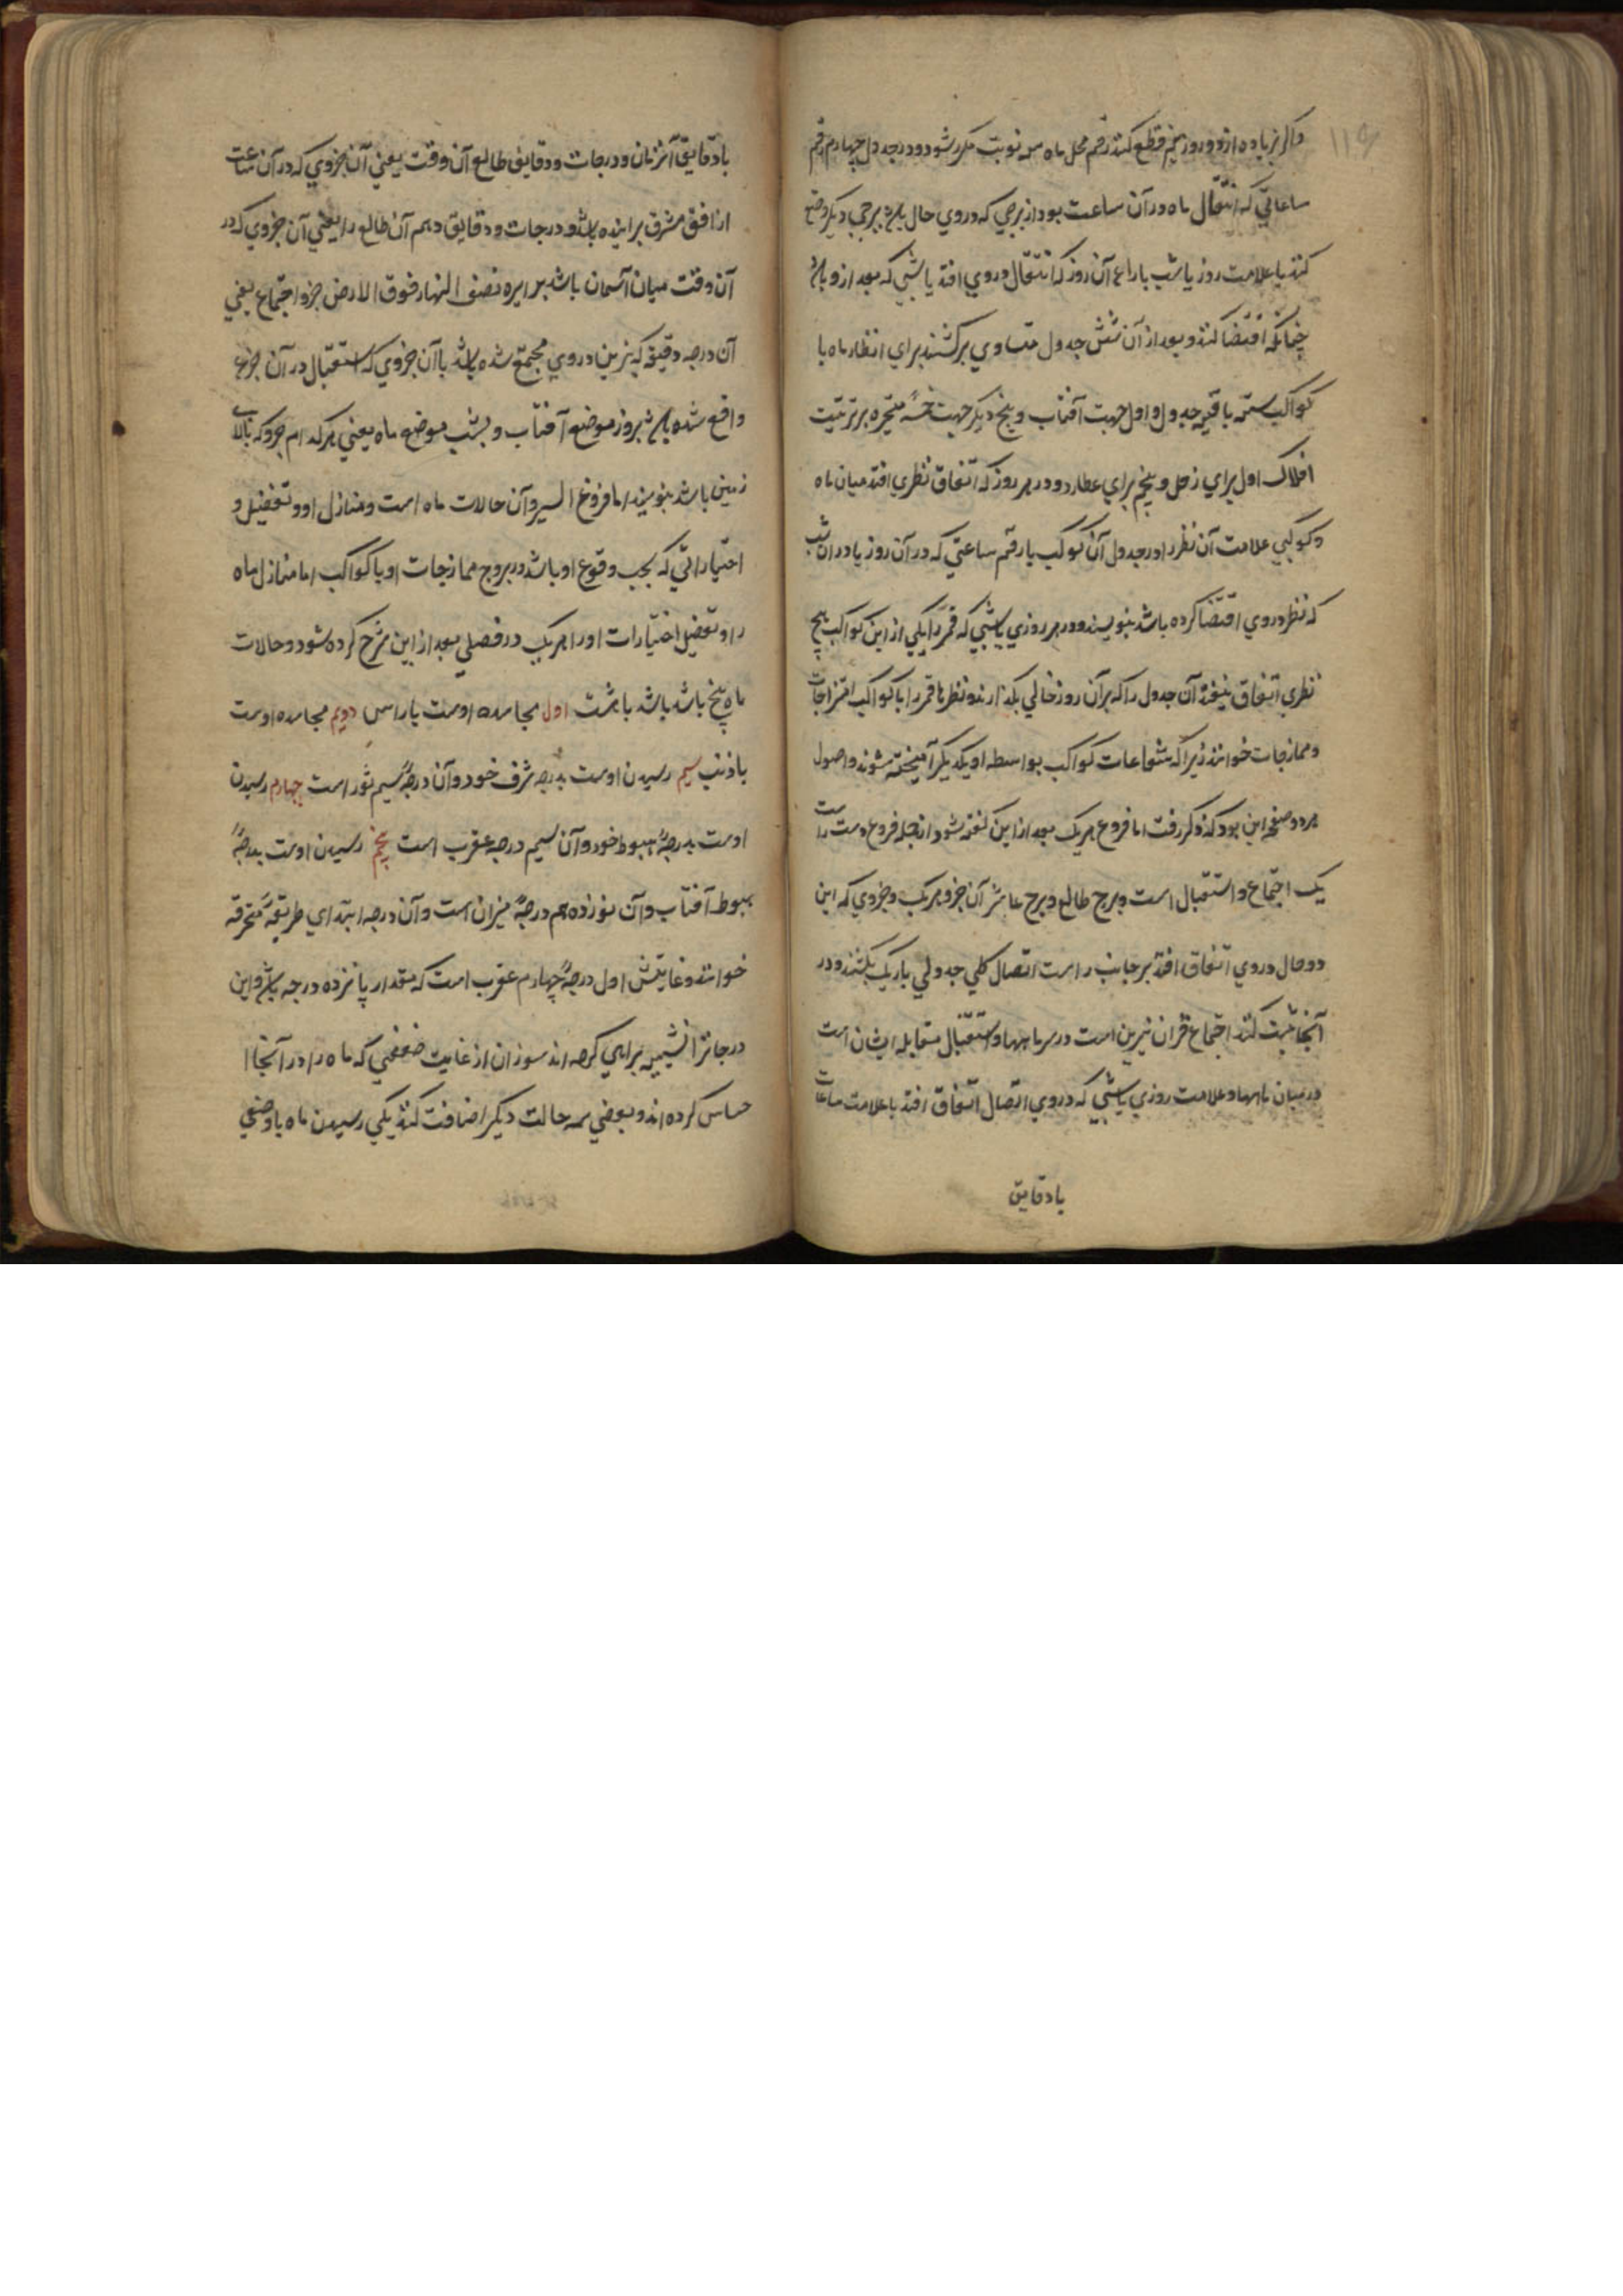 ۱۱۶
و اگر زیاده از دو روز نیم قطع کند رقم محل ماه سه نوبت مکرر شود و در جدول چهارم رقم
ساعاتی که انتقال ماه در آن ساعت بود از برجی که دروی حال باشد ببرجی دیگر وضع
کنند با علامت روز یا شب بازاء آن روز که انتقال دروی افتد یا شبی که بعد از و باشد
چنانکه اقتضا کند و بعد از آن شش جدول متساوی برکشند برای انظار ماه با
کواکب سته باقیه جدول اول جهت آفتاب و پنج دیگر جهت خمسهٔ متحیره بر ترتیب
افلاک اول برای زحل و پنجم برای عطارد و در هر روز که اتفاق نظری افتد میان ماه
و کوکبی علامت آن نظر را در جدول آن کوکب با رقم ساعتی که در آن روز یا در آن شب
که نظر دروی اقتضا کرده باشد بنویسند و در هر روزی یا شبی که قمر را یکی از این کواکب هیچ
نظری اتفاق نیفتد آن جدول را که برآن روز خالی بگذارند و نظرها قمر را با کواکب امتزاجات
و ممازجات خوانند زیرا که شعاعات کواکب بواسطه او یکدیگر آمیخته شوند و اصول
هر دو صفحه این بود که ذکر رفت اما فروع هر یک بعد از این گفته شود از جمله فروع دست راست
یک اجتماع و استقبال است و برج طالع و برج عاشر آن جزو هر یک و جزوی که این
دو حال دروی اتفاق افتد بر جانب راست اتصال کلی جدولی باریک بکشند و در
آنجا ثبت کنند اجتماع قران نیرین است در سر ماهها و استقبال مقابله ایشان است
در میان ماهها و علامت روزی یا شبی که دروی اتصال اتفاق افتد با علامت ساعات
بادقایق
بادقایق آنزمان و درجات و دقایق طالع آن وقت یعنی آن جزوی که در آن ساعت
از افق مشرق براینده باشد و درجات و دقایق دهم آن طالع را یعنی آن جزوی که در
آن وقت میان آسمان باشد بر دایره نصف النهار فوق الارض جزو اجتماع یعنی
آن درجه و دقیقه که نیرین دروی مجتمع شده باشد یا آن جزوی که استقبال در آن جزو
واقع شده باشد بروز موضع آفتاب و بشب موضع ماه یعنی هر کدام جزو که بالای
زمین باشد بنویسند اما فروع السیر و آن حالات ماه است و منازل او و تفصیل و
اختیاراتی که بحسب وقوع او باشد در بروج ممازجات او با کواکب اما منازل ماه
را و تفصیل اختیارات او را هر یک در فصلی بعد از این شرح کرده شود و حالات
ماه پنج باشد باشد یا هشت اول مجاسده اوست با راس دویم مجاسده اوست
با ذنب سیم رسیدن اوست بدرجه شرف خود و آن درجهٔ سیم ثور است چهارم رسیدن
اوست بدرجهٔ هبوط خود و آن سیم درجه عقرب است پنجم رسیدن اوست بدرجهٔ
هبوط آفتاب و آن نوزدهم درجهٔ میزان است و آن درجه ابتدای طریقهٔ محترقه
خوانند و غایتش اول درجهٔ چهارم عقرب است که مقدار پانزده درجه باشد و این
درجات را تشبیه براهی کرده اند سوزان از غایت ضعفی که ماه را در آنجا ا
حساس کرده اند و بعضی سه حالت دیگر اضافت کنند یکی رسیدن ماه با وضعی